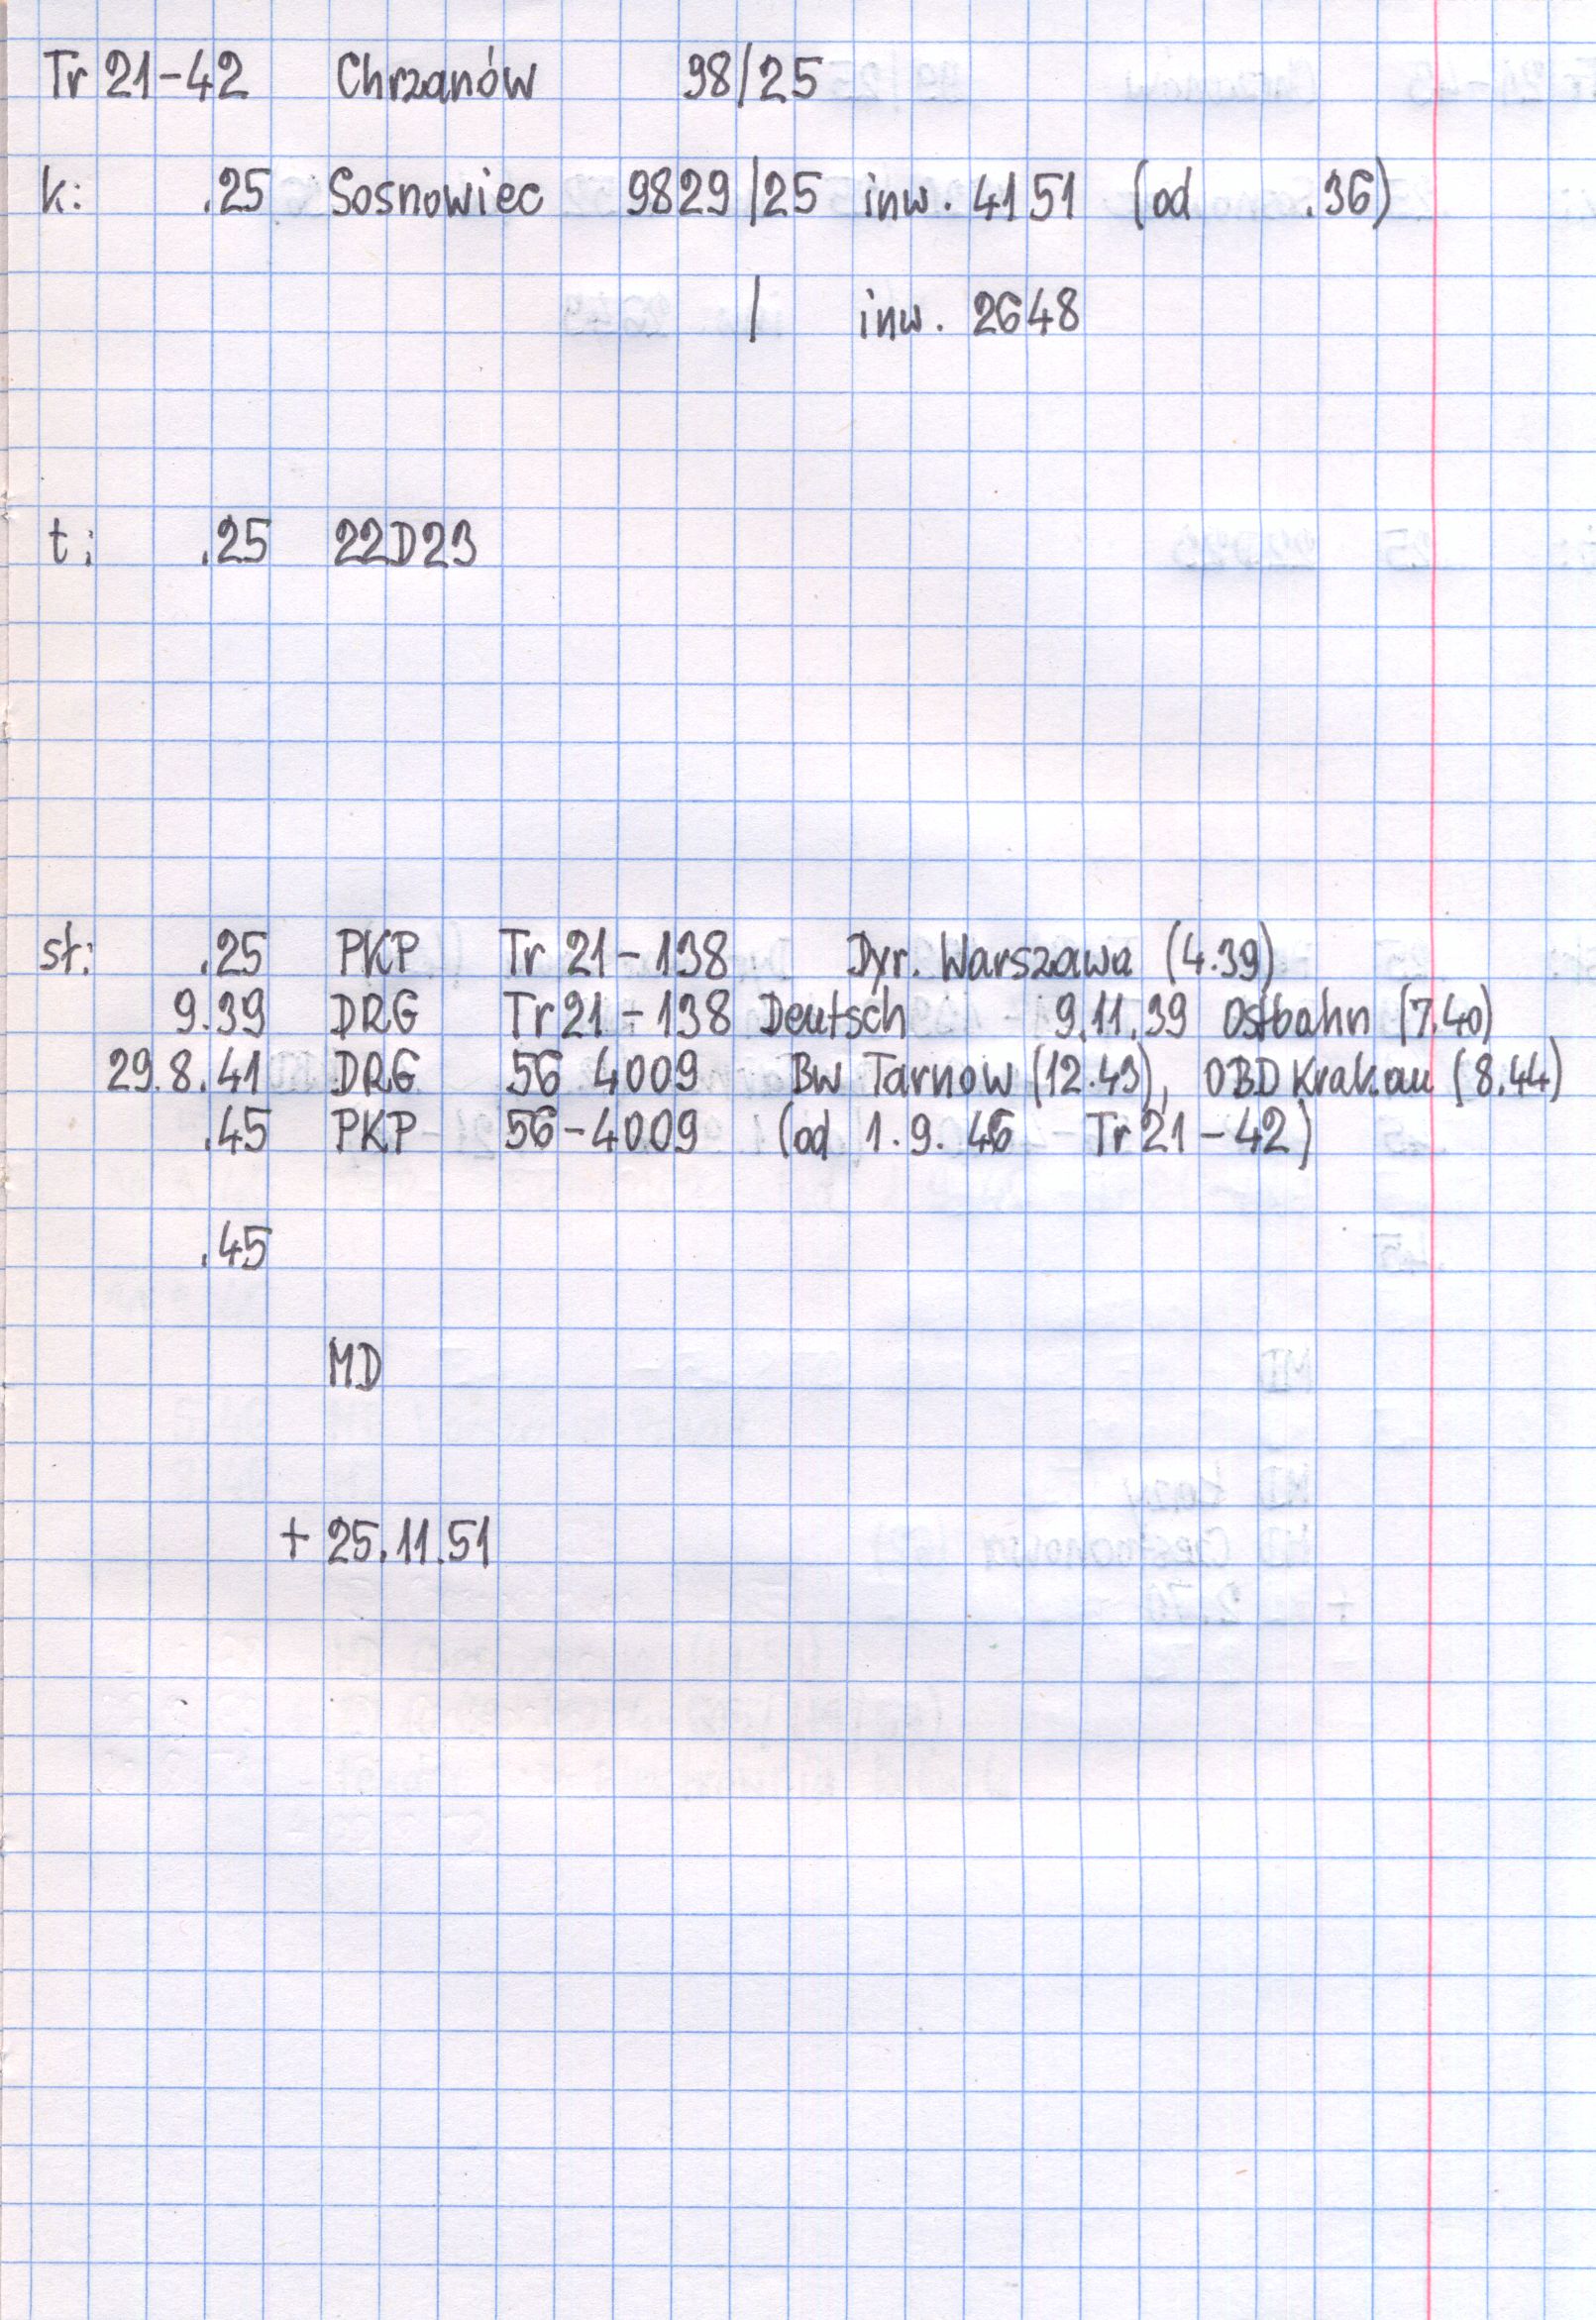 Tr 21-42 Chrzanów 98/25
k: .25 Sosnowiec 9829/25 inw. 4151 (od .36)
/ inw. 2648
t: .25 22D23
sł: .25 PKP Tr 21-138 Dyr. Warszawa (4.39)
9.39 DRG Tr 21-138 Deutsch 9.11.39 Ostbahn (7.40)
29.8.41 DRG 56 4009 Bw Tarnow (12.43), OBD Krakau (8.44)
.45 PKP 56-4009 (od 1.9.46 Tr 21-42)
.45
MD
+ 25.11.51